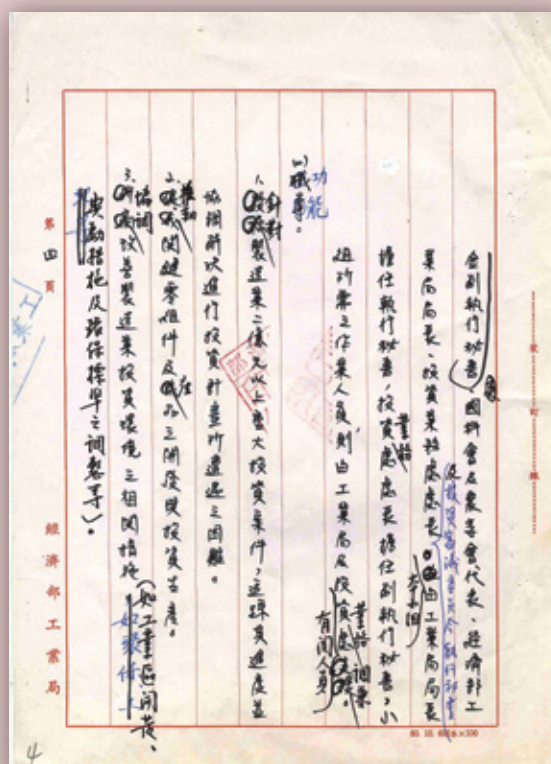 會副執行秘書、國科會及農委會代表、經濟部工
業局局長、投資業務處處長
及投資審議委員會執行秘書
由工業局局長
擔任執行秘書,投資業務處處長擔任副執行秘書,小
本小組
組所需之作業人員則由工業局及投資業務處調兼
有關人員
功能
職導。
1. 針對製造業二億元以上重大投資案件,追蹤其進度並
協調解決進行投資計畫所遭遇之困難。
2. 推動關鍵零組件及產品之開發與投資生產。
3. 協調改善製造業投資環境之相關措施
(如工業區開發、
獎勵措施及環保標準之調整等)。
第四頁
經濟部工業局
號
訂
線
4